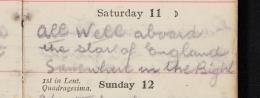 Saturday 11
All Well aboard
the star of England
Somewhere in the Bight
1st in Lent.
Quadragesima.
Sunday 12